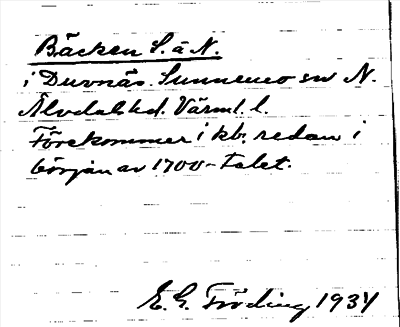 Bäcken S. å N.
i Duvnäs. Sunnemo sn N.
Älvdals hd. Värml. l.
Förekommer i kb. redan i
början av 1700-talet.
E. G. Fröding 1934